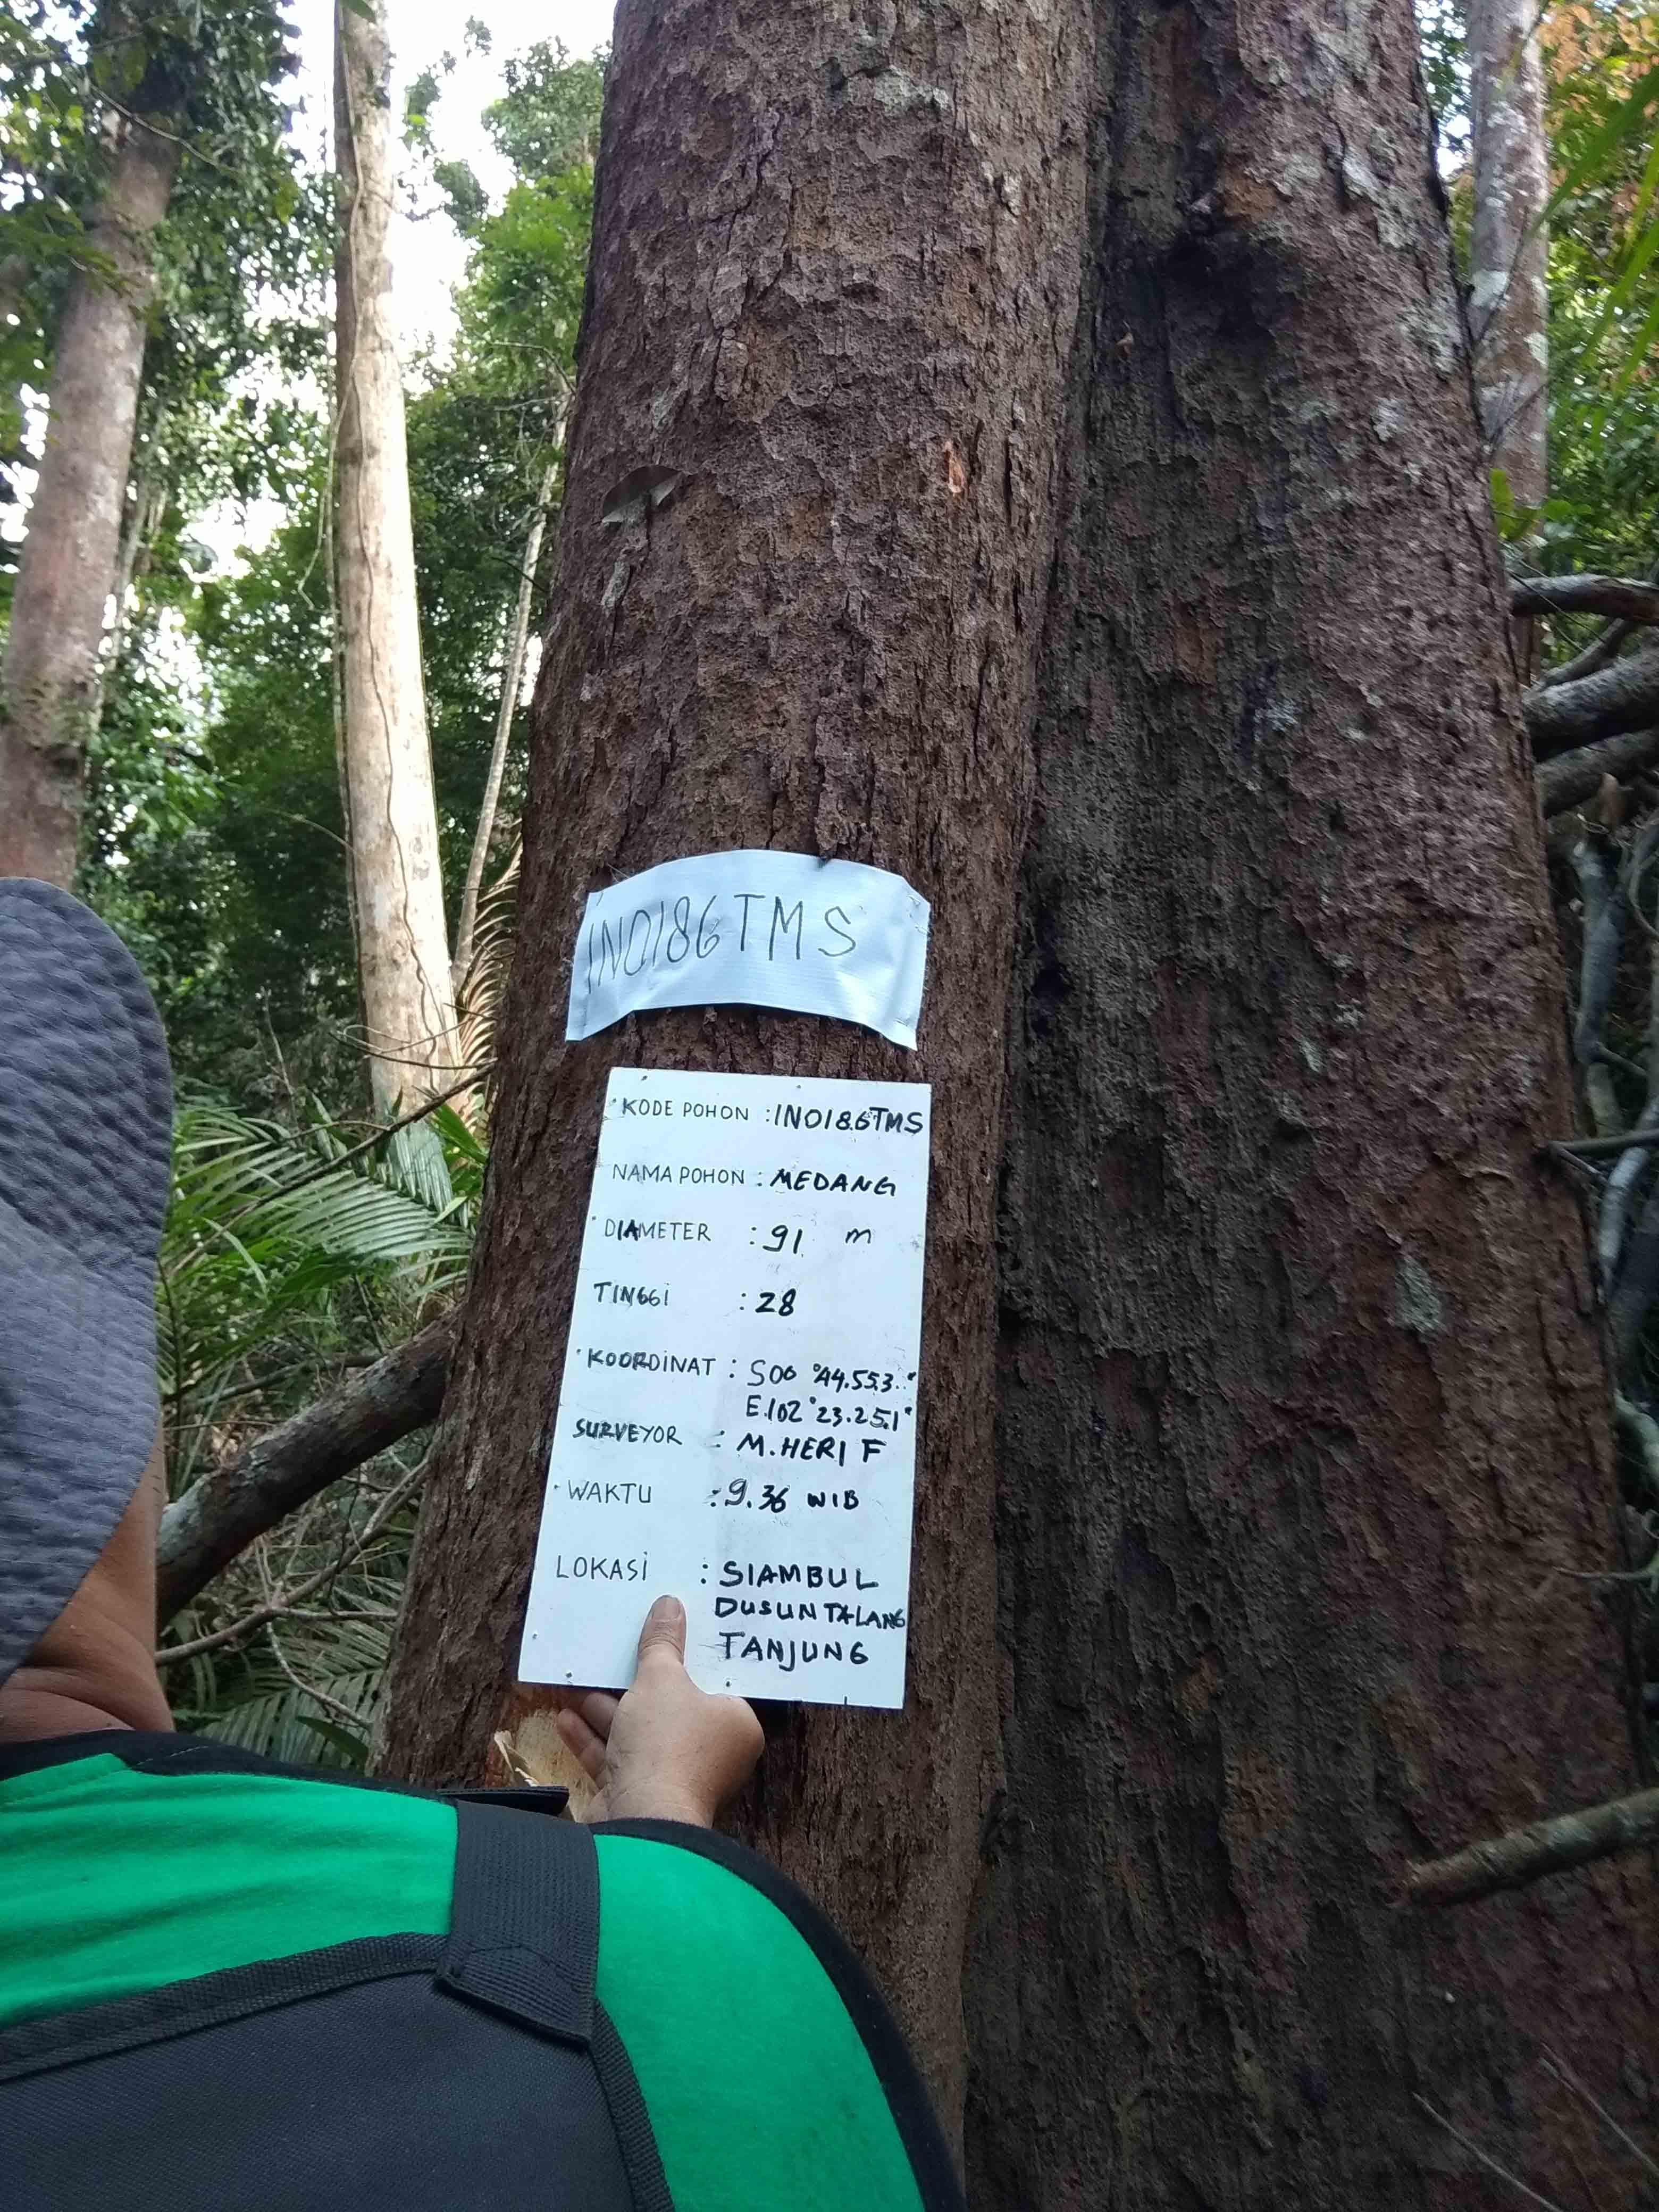 IN0186TMS
KODE POHON : IN0186TMS
NAMA POHON : MEDANG
DIAMETER : 91 m
TINGGI : 28
KOORDINAT : S00 °44.55.3"
E.102°23.25.1"
SURVEYOR : M. HERI F
WAKTU : 9.36 WIB
LOKASI : SIAMBUL
DUSUN TALANG
TANJUNG